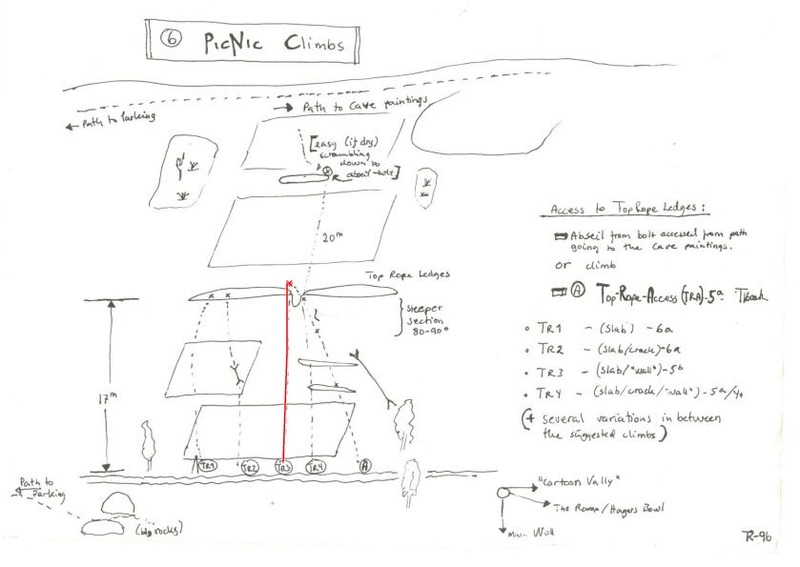 6 PicNic Climbs
← Path to Parking
→ Path to Cave paintings
[easy (if dry)
scrambling
down to
abseil-bolt]
20m
Top Rope Ledges
Steeper
section
80-90°
17m
TR1 TR2 TR3 TR4 A
Path to
Parking
(big rocks)
Access to TopRope Ledges:
Abseil from bolt accessed from path
going to the cave paintings.
or climb
A Top-Rope-Access (TRA)-5a
• TR1 - (slab) - 6a
• TR2 - (slab/crack)-6a
• TR3 - (slab/"wall")-5b
• TR4 - (slab/crack/"wall")-5a/4+
(+ several variations in between
the suggested climbs)
"Cartoon Vally"
The Ramp/Hagers Bowl
Main Wall
R-96